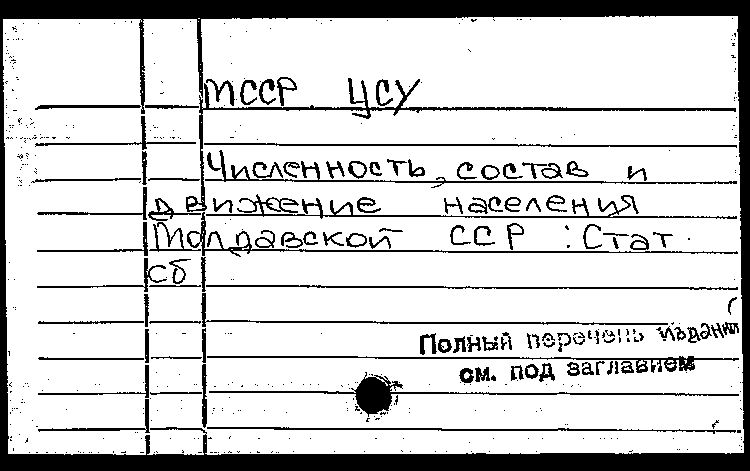 МССР. ЦСУ
Численность, состав и
движение населения
Молдавской ССР : Стат.
сб
Полный перечень издании
см. под заглавием